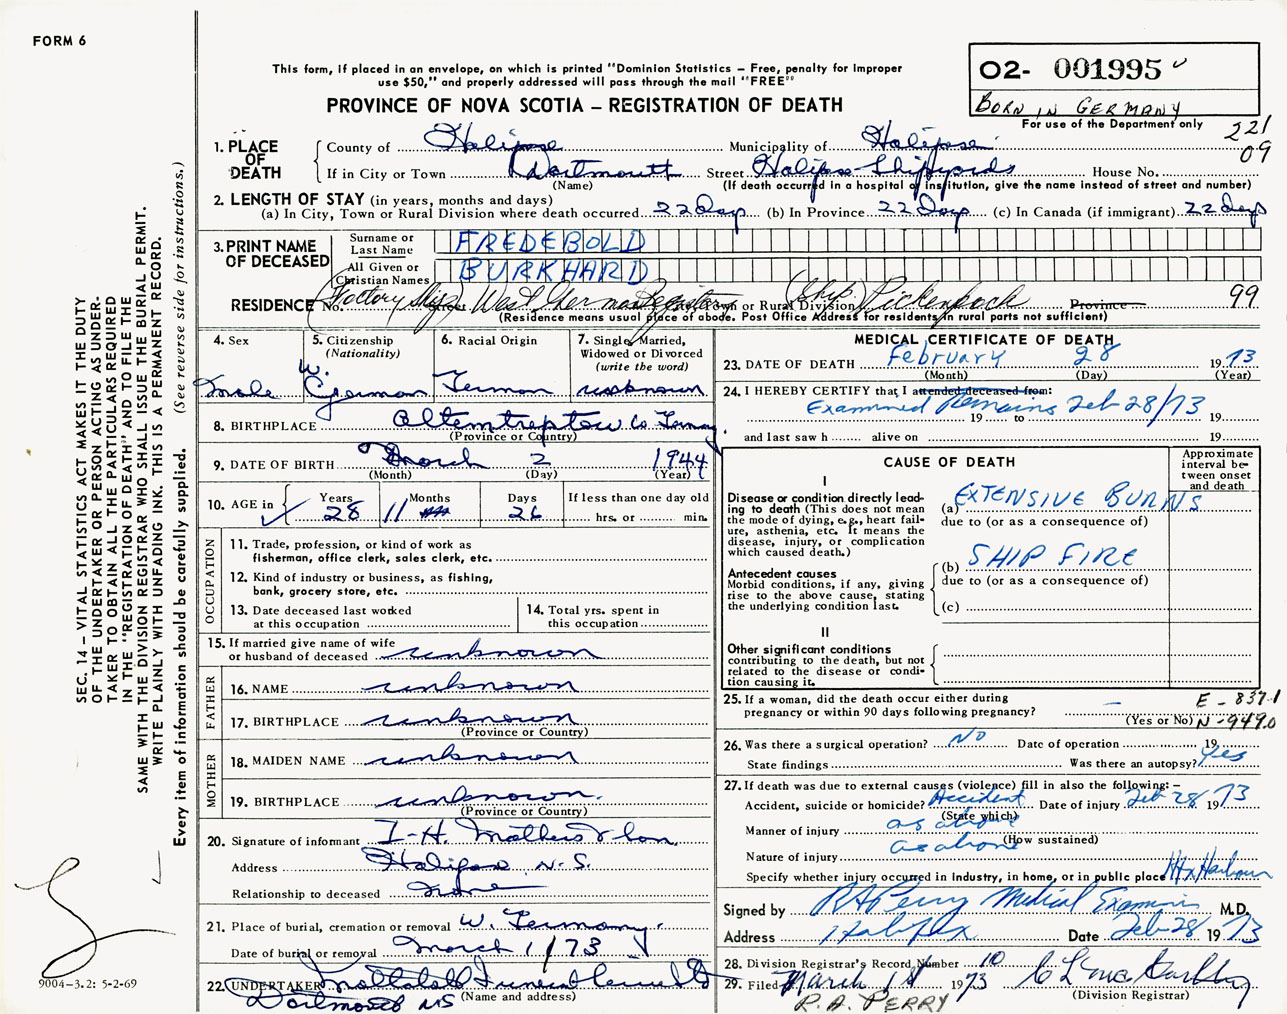 FORM 6
This form, if placed in an envelope, on which is printed "Dominion Statistics – Free, penalty for improper
use $50," and properly addressed will pass through the mail "FREE"
PROVINCE OF NOVA SCOTIA – REGISTRATION OF DEATH
02- 001995
BORN IN GERMANY
For use of the Department only
221
09
1. PLACE OF DEATH
County of Halifax Municipality of Halifax
If in City or Town Dartmouth Street Halifax Shipyards House No.
(Name) (If death occurred in a hospital or institution, give the name instead of street and number)
2. LENGTH OF STAY (in years, months and days)
(a) In City, Town or Rural Division where death occurred 22 Days (b) In Province 22 Days (c) In Canada (if immigrant) 22 days
3. PRINT NAME OF DECEASED
Surname or Last Name FREDEBOLD
All Given or Christian Names BURKHARD
RESIDENCE No. (Factory Ship) Street West German Registry City, Town or Rural Division (Ship) Pickenpack Province 99
(Residence means usual place of abode. Post Office Address for residents in rural parts not sufficient)
4. Sex
Male
5. Citizenship
(Nationality)
W. German
6. Racial Origin
German
7. Single, Married,
Widowed or Divorced
(write the word)
unknown
8. BIRTHPLACE Altemtreptow Co Germany
(Province or Country)
9. DATE OF BIRTH March 2 1944
(Month) (Day) (Year)
10. AGE in Years Months Days If less than one day old
28 11 26 hrs. or min.
OCCUPATION
11. Trade, profession, or kind of work as
fisherman, office clerk, sales clerk, etc.
12. Kind of industry or business, as fishing,
bank, grocery store, etc.
13. Date deceased last worked
at this occupation
14. Total yrs. spent in
this occupation
15. If married give name of wife
or husband of deceased unknown
FATHER
16. NAME unknown
17. BIRTHPLACE unknown
(Province or Country)
MOTHER
18. MAIDEN NAME unknown
19. BIRTHPLACE unknown.
(Province or Country)
20. Signature of informant I. H. Mathers & Son.
Address Halifax, N.S.
Relationship to deceased None
21. Place of burial, cremation or removal W. Germany.
Date of burial or removal March 1/73
22. UNDERTAKER Funeral
Dartmouth NS
(Name and address)
MEDICAL CERTIFICATE OF DEATH
23. DATE OF DEATH February 28 1973
(Month) (Day) (Year)
24. I HEREBY CERTIFY that I attended deceased from:
Examined Remains Feb 28/73
19 to 19
and last saw h alive on 19
CAUSE OF DEATH
Approximate
interval be-
tween onset
and death
I
Disease or condition directly lead-
ing to death (This does not mean
the mode of dying, e.g., heart fail-
ure, asthenia, etc. It means the
disease, injury, or complication
which caused death.)
(a) EXTENSIVE BURNS
due to (or as a consequence of)
Antecedent causes
Morbid conditions, if any, giving
rise to the above cause, stating
the underlying condition last.
(b) SHIP FIRE
due to (or as a consequence of)
(c)
II
Other significant conditions
contributing to the death, but not
related to the disease or condi-
tion causing it.
25. If a woman, did the death occur either during
pregnancy or within 90 days following pregnancy? –
(Yes or No)
E - 837.1
N - 949.0
26. Was there a surgical operation? No Date of operation 19
State findings Was there an autopsy? Yes
27. If death was due to external causes (violence) fill in also the following: –
Accident, suicide or homicide? Accident Date of injury Feb 28/ 1973
(State which)
Manner of injury as above
(How sustained)
Nature of injury as above
Specify whether injury occurred in Industry, in home, or in public place Hfx Harbour
Signed by RAPerry Medical Examiner M.D.
Address Halifax Date Feb 28 1973
28. Division Registrar's Record Number 10
29. Filed March 1st 1973
(Division Registrar)
R. A. PERRY
SEC. 14 – VITAL STATISTICS ACT MAKES IT THE DUTY
OF THE UNDERTAKER OR PERSON ACTING AS UNDER-
TAKER TO OBTAIN ALL THE PARTICULARS REQUIRED
IN THE "REGISTRATION OF DEATH" AND TO FILE THE
SAME WITH THE DIVISION REGISTRAR WHO SHALL ISSUE THE BURIAL PERMIT.
WRITE PLAINLY WITH UNFADING INK. THIS IS A PERMANENT RECORD.
Every item of information should be carefully supplied. (See reverse side for instructions.)
9004-3.2: 5-2-69